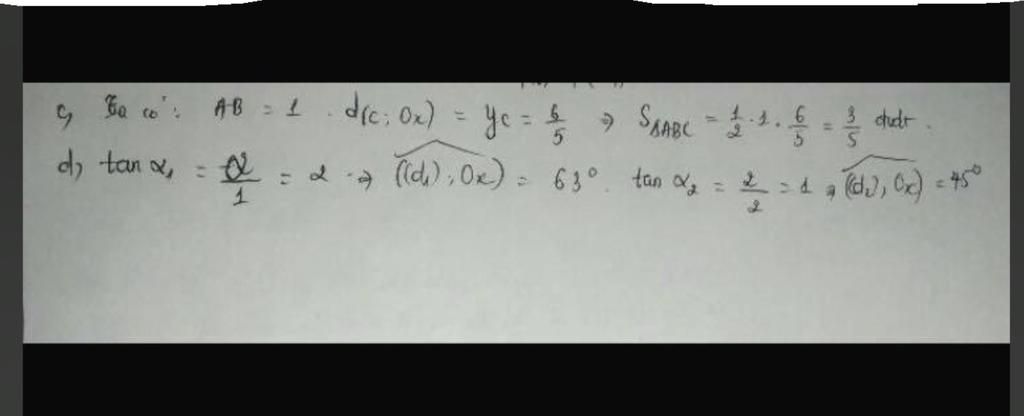 c, Ta có: AB = 1 . d(C; Ox) = yc = 6/5 ⇒ SΔABC = 1/2 . 1 . 6/5 = 3/5 đvdt.
d, tan α₁ = 2/1 = 2 ⇒ ((d₁), Ox) = 63° . tan α₂ = 2/2 = 1 ⇒ ((d₂), Ox) = 45°